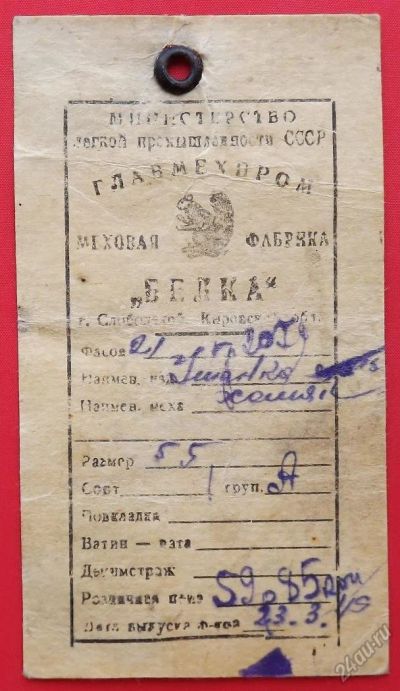 МИНИСТЕРСТВО
легкой промышленности СССР
ГЛАВМЕХПРОМ
МЕХОВАЯ ФАБРИКА
„БЕЛКА“
г. Слободской Кировской обл.
Фасон 21
Наимен. изд. Шапка
Наимен. меха хомяк
Размер 55
Сорт 1 груп. А
Подкладка
Ватин — вата
Дециметраж
Розничная цена 59.85
Дата выпуска ф-кой 23.3.
24au.ru